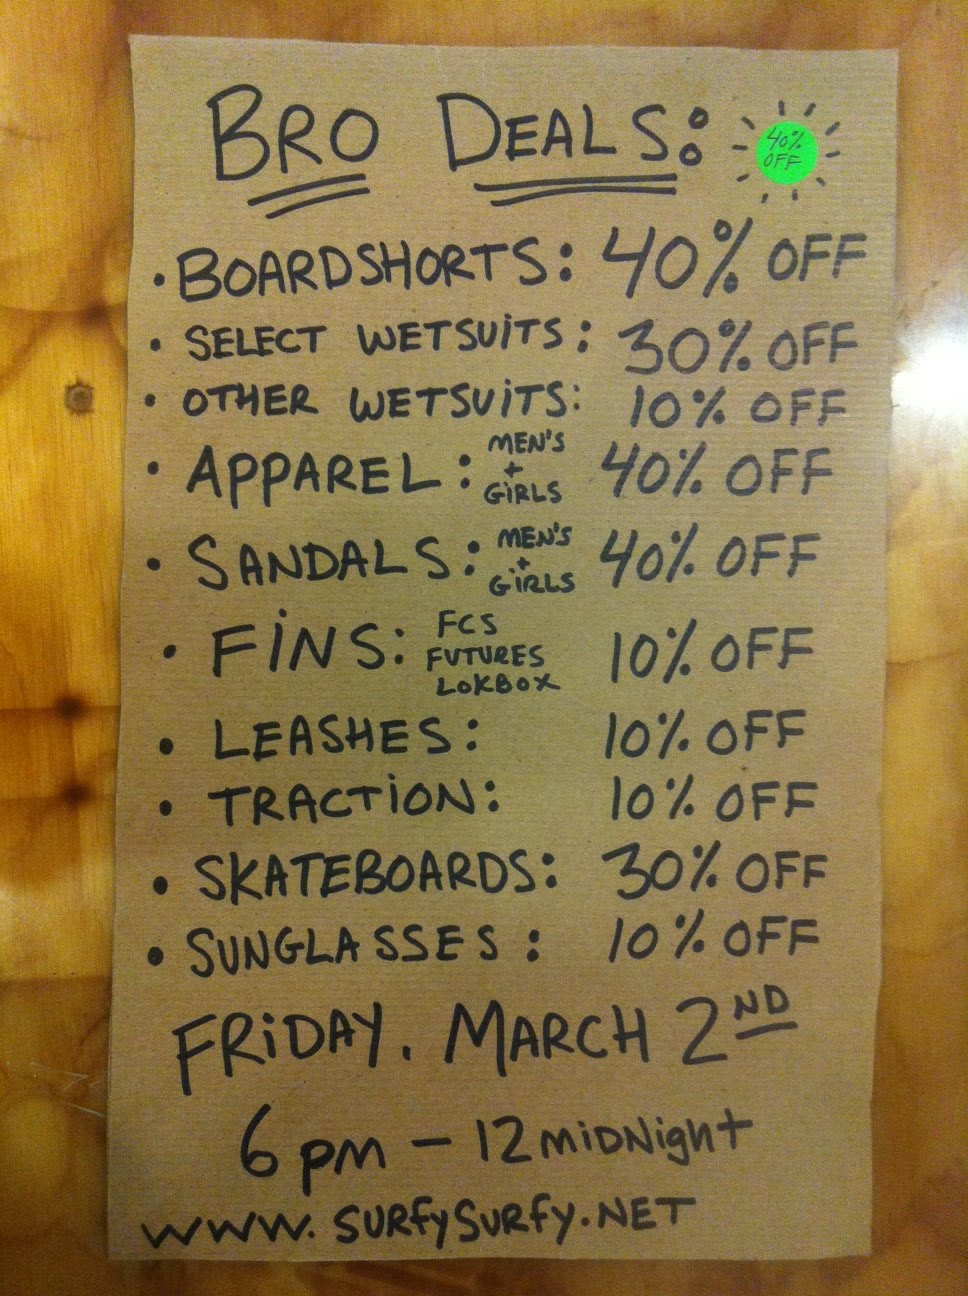 BRO DEALS:
40%
OFF
• BOARDSHORTS: 40% OFF
• SELECT WETSUiTS: 30% OFF
• OTHER WETSUiTS: 10% OFF
• APPAREL: MEN'S + GiRLS 40% OFF
• SANDALS: MEN'S + GiRLS 40% OFF
• FiNS: FCS FUTURES LOKBOX 10% OFF
• LEASHES: 10% OFF
• TRACTiON: 10% OFF
• SKATEBOARDS: 30% OFF
• SUNGLASSES: 10% OFF
FRiDAY. MARCH 2ND
6pm - 12 miDNight
www.SURfySURfy.NET